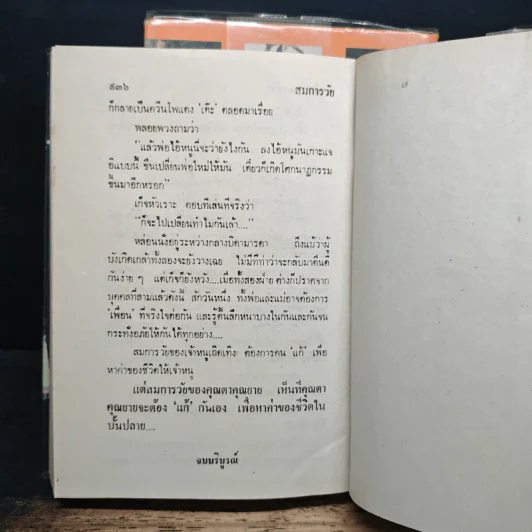 ๕๓๖ สมการวัย
ก็กลายเป็นควีนโพแดง 'เต๊ะ' ตลอดมาเรื่อย
พลอยพวงถามว่า
"แล้วพ่อไอ้หนูนี่จะว่ายังไงกัน ลงไอ้หนูมันเกาะแจ
อีแบบนี้ ขืนเปลี่ยนพ่อใหม่ให้มัน เดี๋ยวก็เกิดโศกนาฏกรรม
ขึ้นมาอีกหรอก"
เก๋จหัวเราะ ตอบทีเล่นทีจริงว่า
"ก็จะไปเปลี่ยนทำไมกันเล้า...."
หล่อนนั่งอยู่ระหว่างกลางบิดามารดา ถึงแม้ว่าผู้
บังเกิดเกล้าทั้งสองจะยังวางเฉย ไม่มีทีท่าว่าจะกลับมาคืนดี
กันง่าย ๆ แต่เก๋จก็ยังหวัง....เมื่อทั้งสองฝ่าย ต่างก็ปราศจาก
บุคคลที่สามแล้วดังนี้ สักวันหนึ่ง ทั้งพ่อและแม่อาจต้องการ
'เพื่อน' ที่จริงใจต่อกัน และรู้ตื้นลึกหนาบางในกันและกันจน
กระทั่งอภัยให้กันได้ทุกอย่าง....
สมการวัยของเจ้าหนูเถิดเทิง ต้องการคน 'แก้' เพื่อ
หาค่าของชีวิตให้เจ้าหนู
แต่สมการวัยของคุณตาคุณยาย เห็นที่คุณตา
คุณยายจะต้อง 'แก้' กันเอง เพื่อหาค่าของชีวิตใน
บั้นปลาย....
จบบริบูรณ์